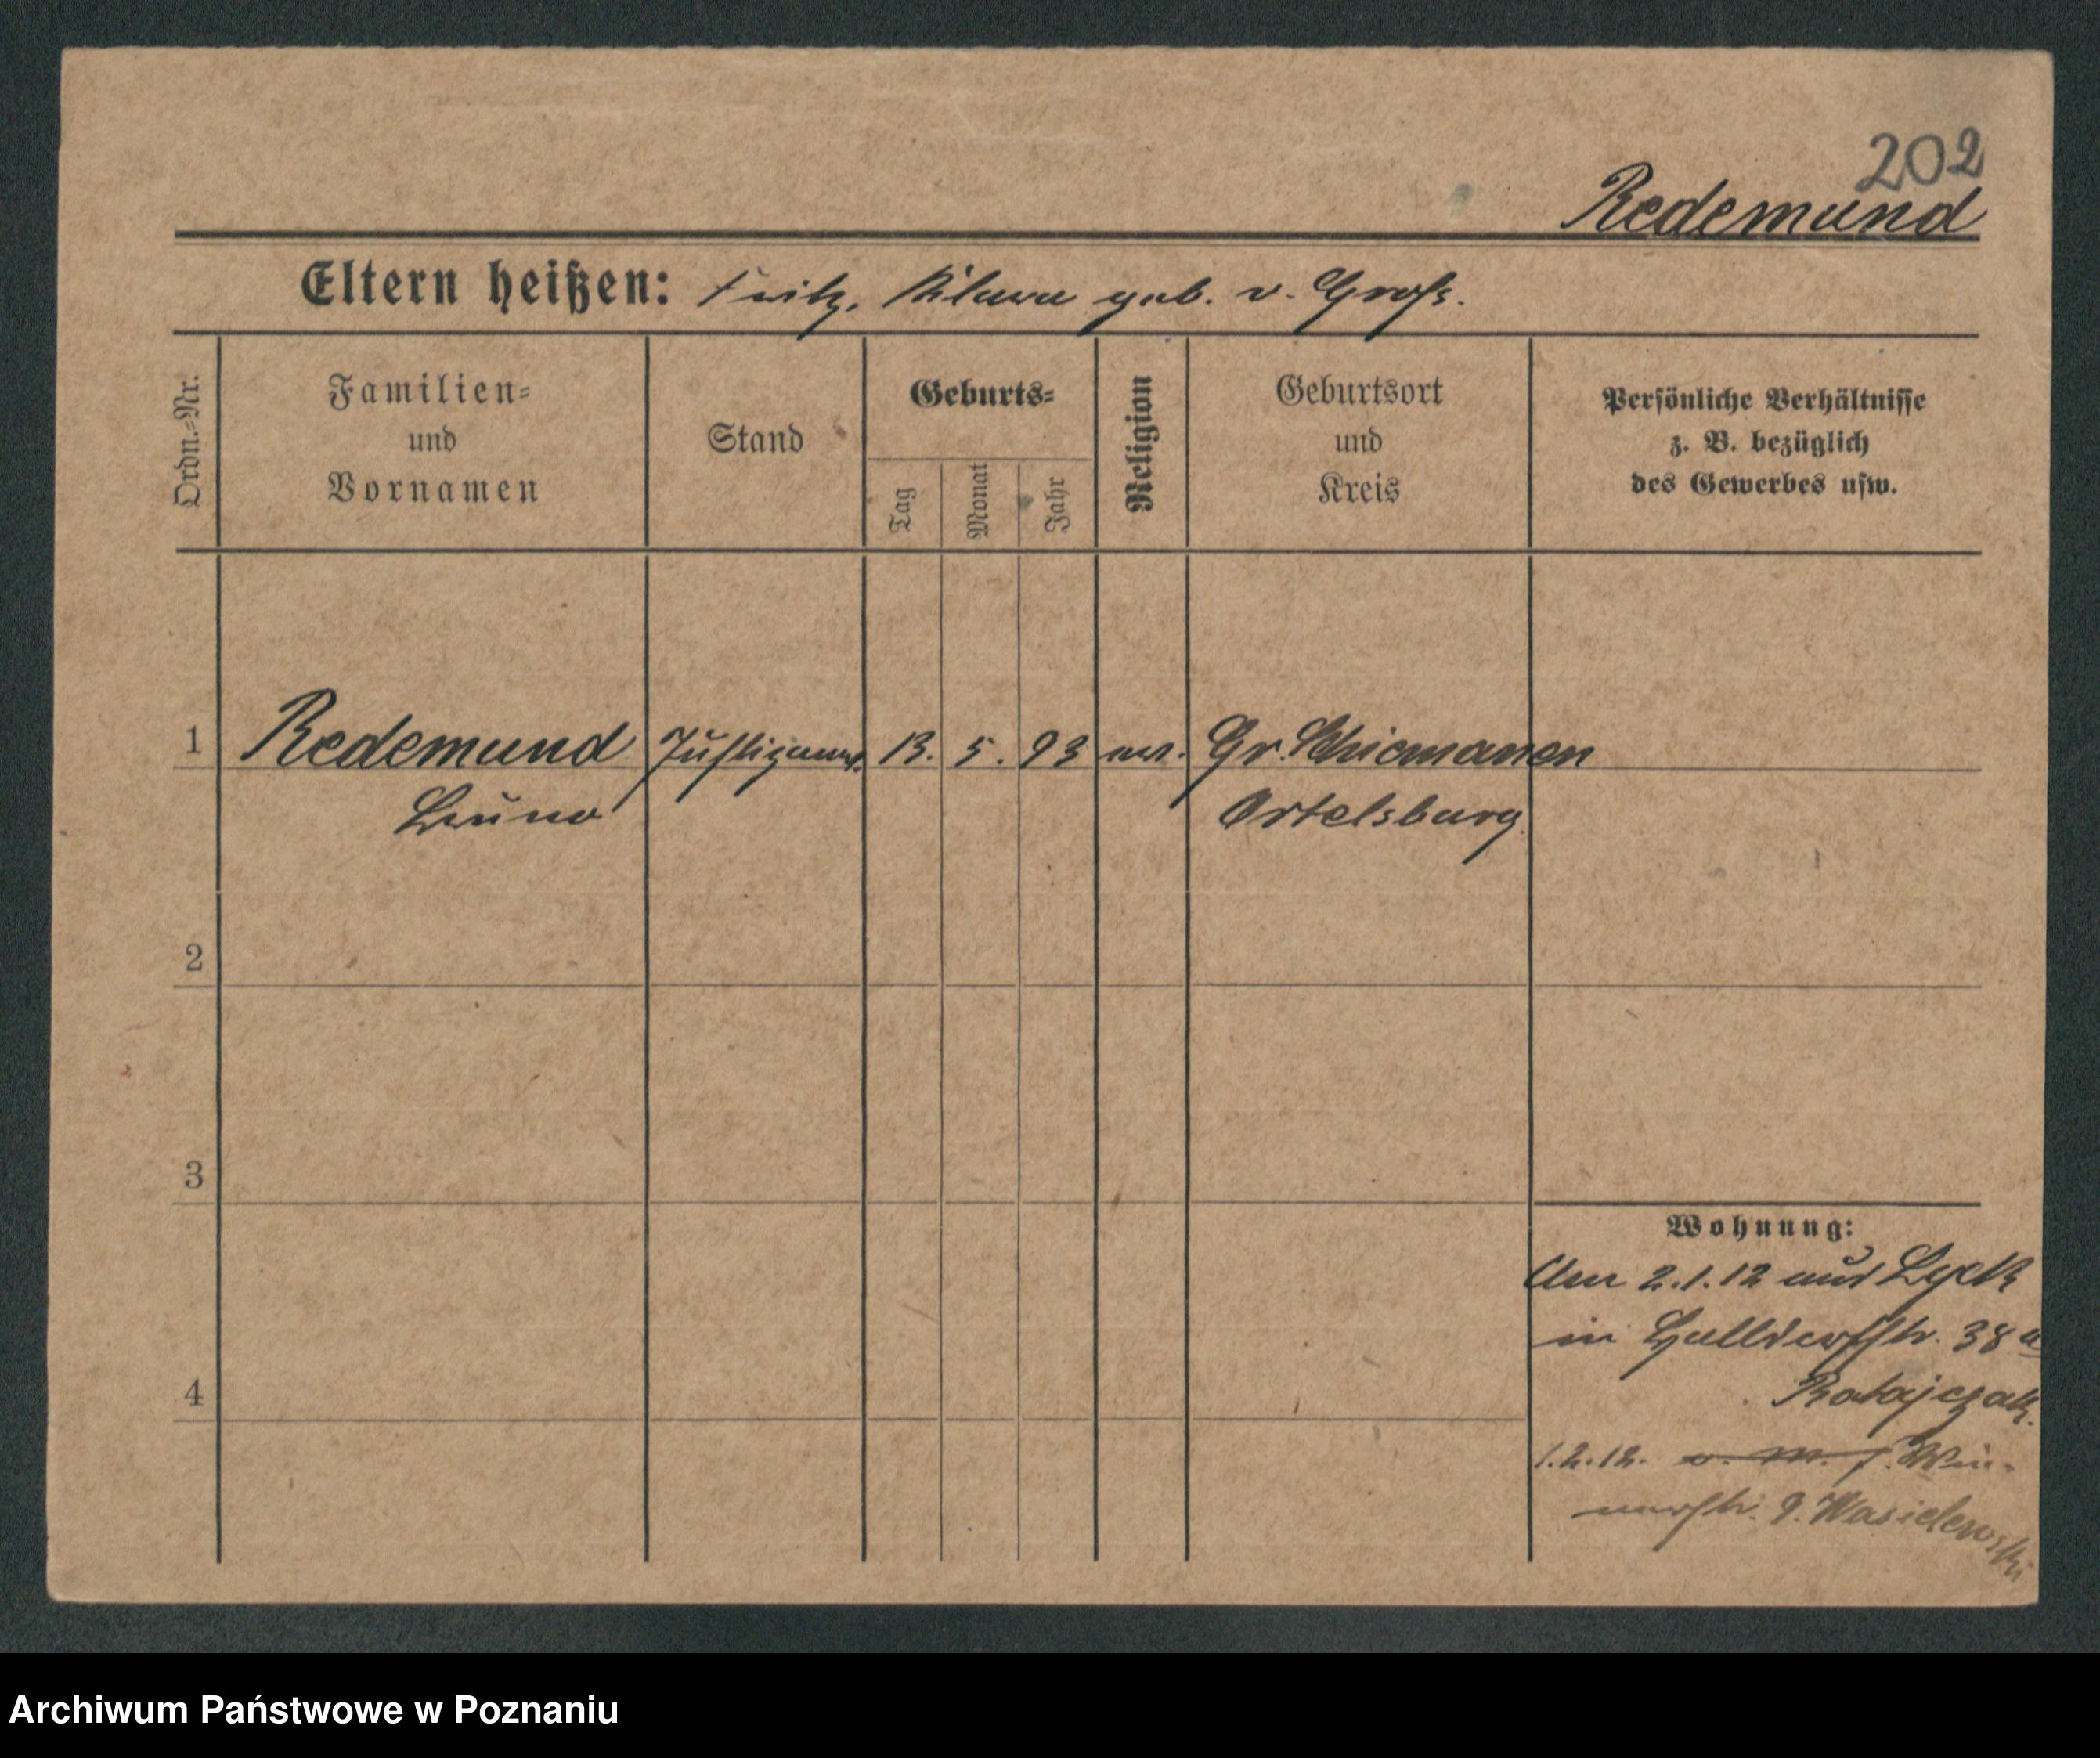 202
Redemund
Eltern heißen: Fritz, geb. v. Groß.
Ordn.-Nr.
Familien-
und
Vornamen
Stand
Geburts-
Tag
Monat
Jahr
Religion
Geburtsort
und
Kreis
Persönliche Verhältnisse
z. B. bezüglich
des Gewerbes usw.
1 Redemund 13. 5. 93 Gr. Schiemanen
Bruno Ortelsburg.
2
3
Wohnung:
2.1.12 aus Lyck
in 38a
4 Ratajczak.
1.2.12. v. M. f.
9. Wasielewski
Archiwum Państwowe w Poznaniu